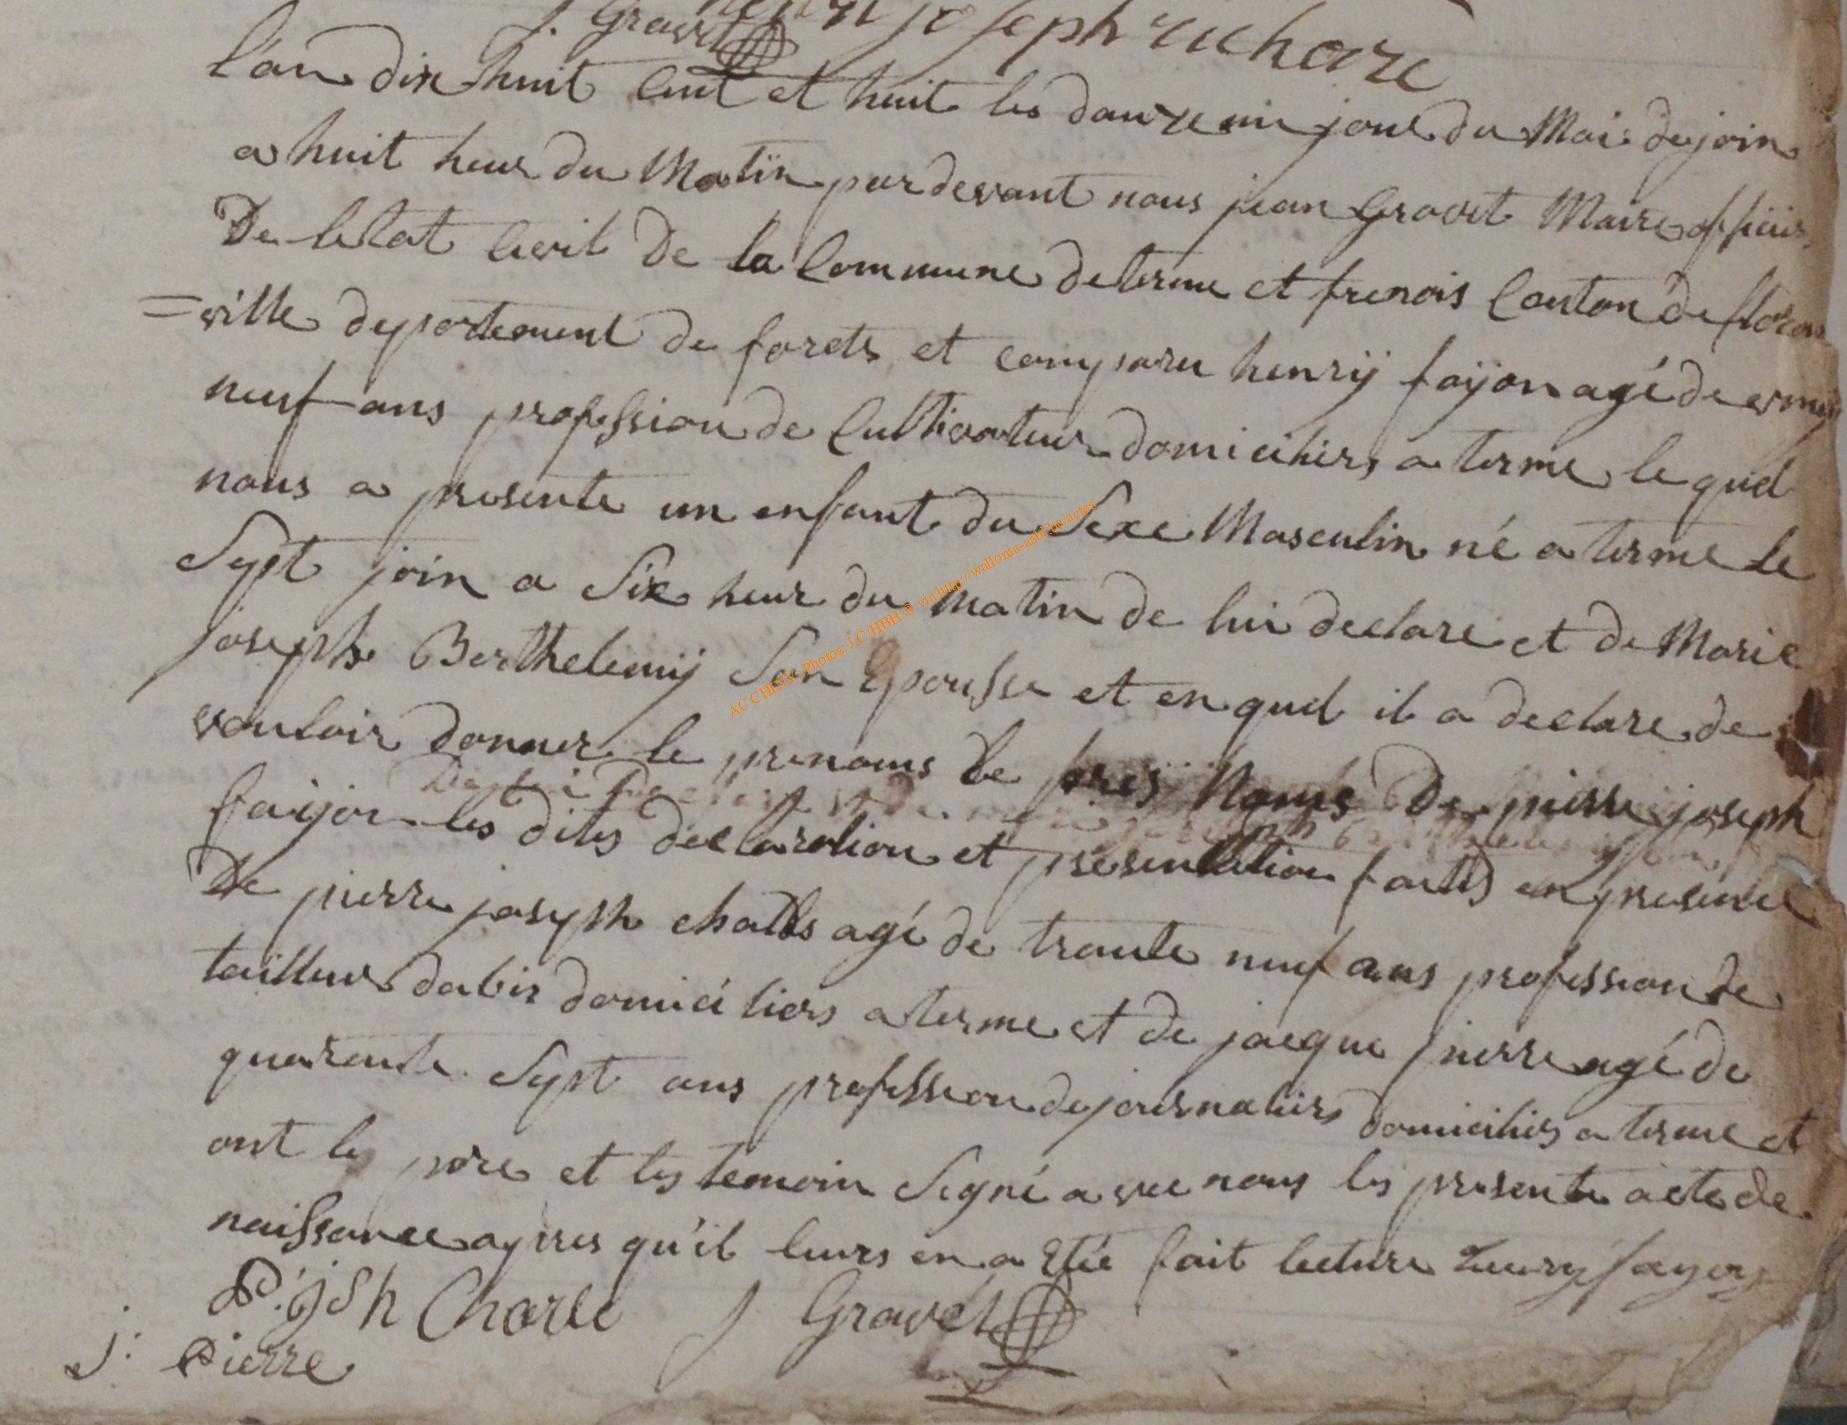 J Gravet henri joseph richard
l'an dix huit Cent et huit les douzemie jour du Mois de join
a huit heur du Matin par devant nous jean Gravet Maire officier
De letat Civil De la Commune de terme et frenois Canton de floren
=ville departement de forets et comparu henrÿ faÿon agé de
neuf ans profession de Cultivateur domiciliers a terme le quel
nous a presente un enfant du Sexe Masculin né a terme le
Sept join a Six heur du Matin de lui declare et de Marie
joseph Berthelemÿ Son Epousse et en quel il a declare de
vouloir donner le prenoms de Noms De pierre joseph
faijon les dites declaration et presentation faites en presence
De pierre joseph challs agé de trante neuf ans profession de
tailleur dabis domiciliers a terme et de jacque pierre agé de
quarente Sept ans profession de journaliers domiciliers a terme et
ont les pere et les temoin Signé avec nous les presente acte de
naissance apres qu'il leurs en a Etée fait lecture henry fayon
P: jsh Charle J Gravét
J: Pierre
AC CHINY Photos: J.C/HBH © via http://wallonia-asbl.be/actes